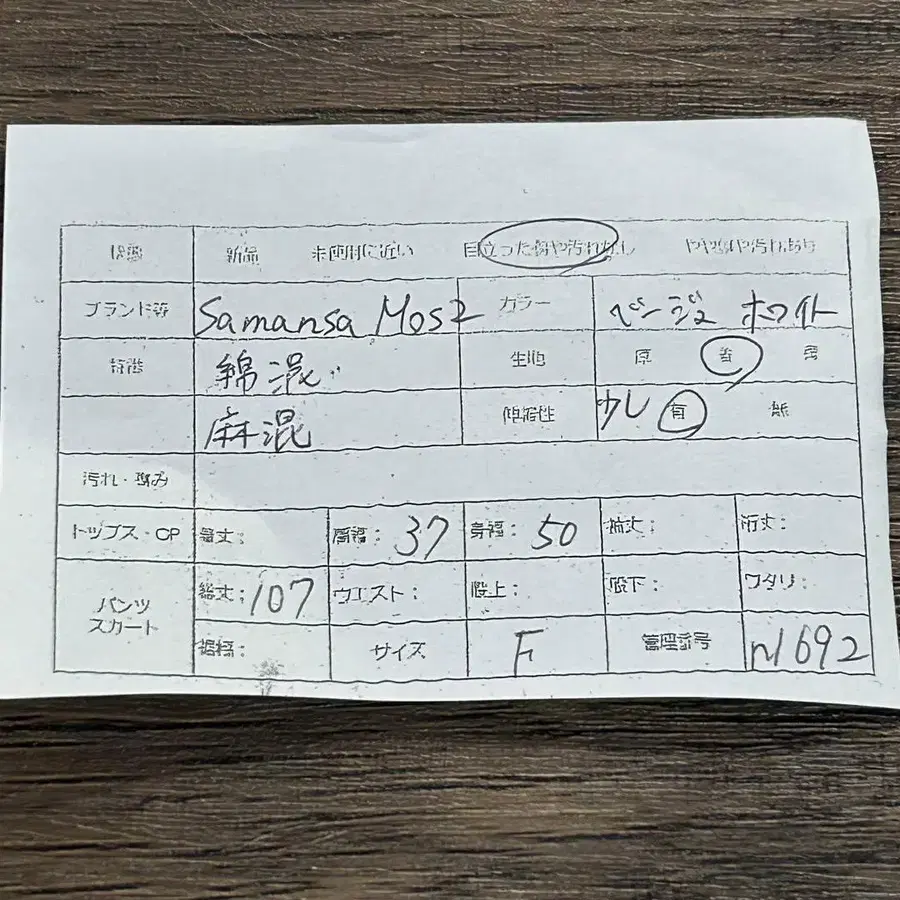 状態 新品 未使用に近い 目立った傷や汚れなし やや傷や汚れあり
ブランド等 Samansa Mos2 カラー ベージュ ホワイト
特徴 綿混 生地 厚 普 薄
麻混 伸縮性 少し 有 無
汚れ・傷み
トップス・OP 着丈: 肩幅: 37 身幅: 50 袖丈: 裄丈:
パンツ スカート 総丈: 107 ウエスト: 股上: 股下: ワタリ:
裾幅: サイズ F 管理番号 n1692